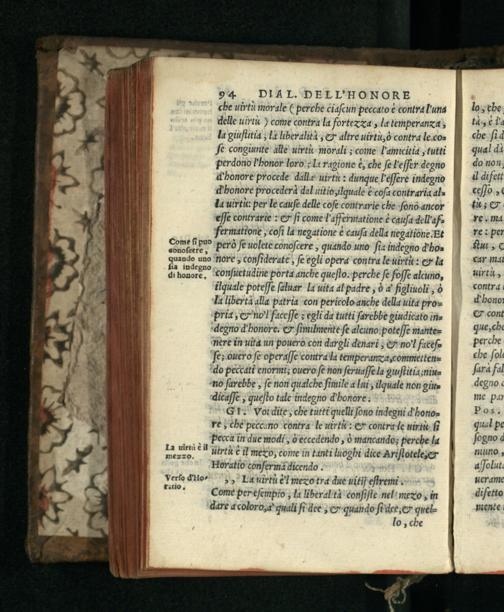 94 DIAL. DELL'HONORE
che uirtù morale (perche ciascun peccato è contra l'una
delle uirtù) come contra la fortezza, la temperanza,
la giustitia, la liberalità, & altre uirtù, ò contra le co-
se congiunte alle uirtù morali; come l'amicitia, tutti
perdono l'honor loro; la ragione è, che se l'esser degno
d'honore procede dalla uirtù: dunque l'essere indegno
d'honore procederà dal uitio, ilquale è cosa contraria al-
la uirtù: per le cause delle cose contrarie che sono ancor
esse contrarie: & si come l'affermatione è causa dell'af-
fermatione, così la negatione è causa della negatione. Et
però se uolete conoscere, quando uno sia indegno d'ho-
nore, considerate, se egli opera contra le uirtù: & la
consuetudine porta anche questo. perche se fosse alcuno,
ilquale potesse saluar la uita al padre, ò a' figliuoli, ò
la libertà alla patria con pericolo anche della uita pro-
pria, & no'l facesse; egli da tutti sarebbe giudicato in-
degno d'honore. & similmente se alcuno potesse mante-
nere in uita un pouero con dargli denari, & no'l faces-
se; ouero se operasse contra la temperanza, commetten-
do peccati enormi; ouero se non seruasse la giustitia; niu-
no sarebbe, se non qualche simile a lui, ilquale non giu-
dicasse, questo tale indegno d'honore.
GI. Voi dite, che tutti quelli sono indegni d'hono-
re, che peccano contra le uirtù: & contra le uirtù si
pecca in due modi, ò eccedendo, ò mancando; perche la
uirtù è il mezo, come in tanti luoghi dice Aristotele, &
Horatio conferma dicendo.
,, La uirtù è'l mezo tra due uitij estremi.
Come per esempio, la liberalità consiste nel mezo, in
dare a coloro, a' quali si dee, & quando si dee, & quel-
lo, che
Come si può
conoscere,
quando uno
sia indegno
di honore.
La uirtù è il
mezzo.
Verso d'Ho-
ratio.